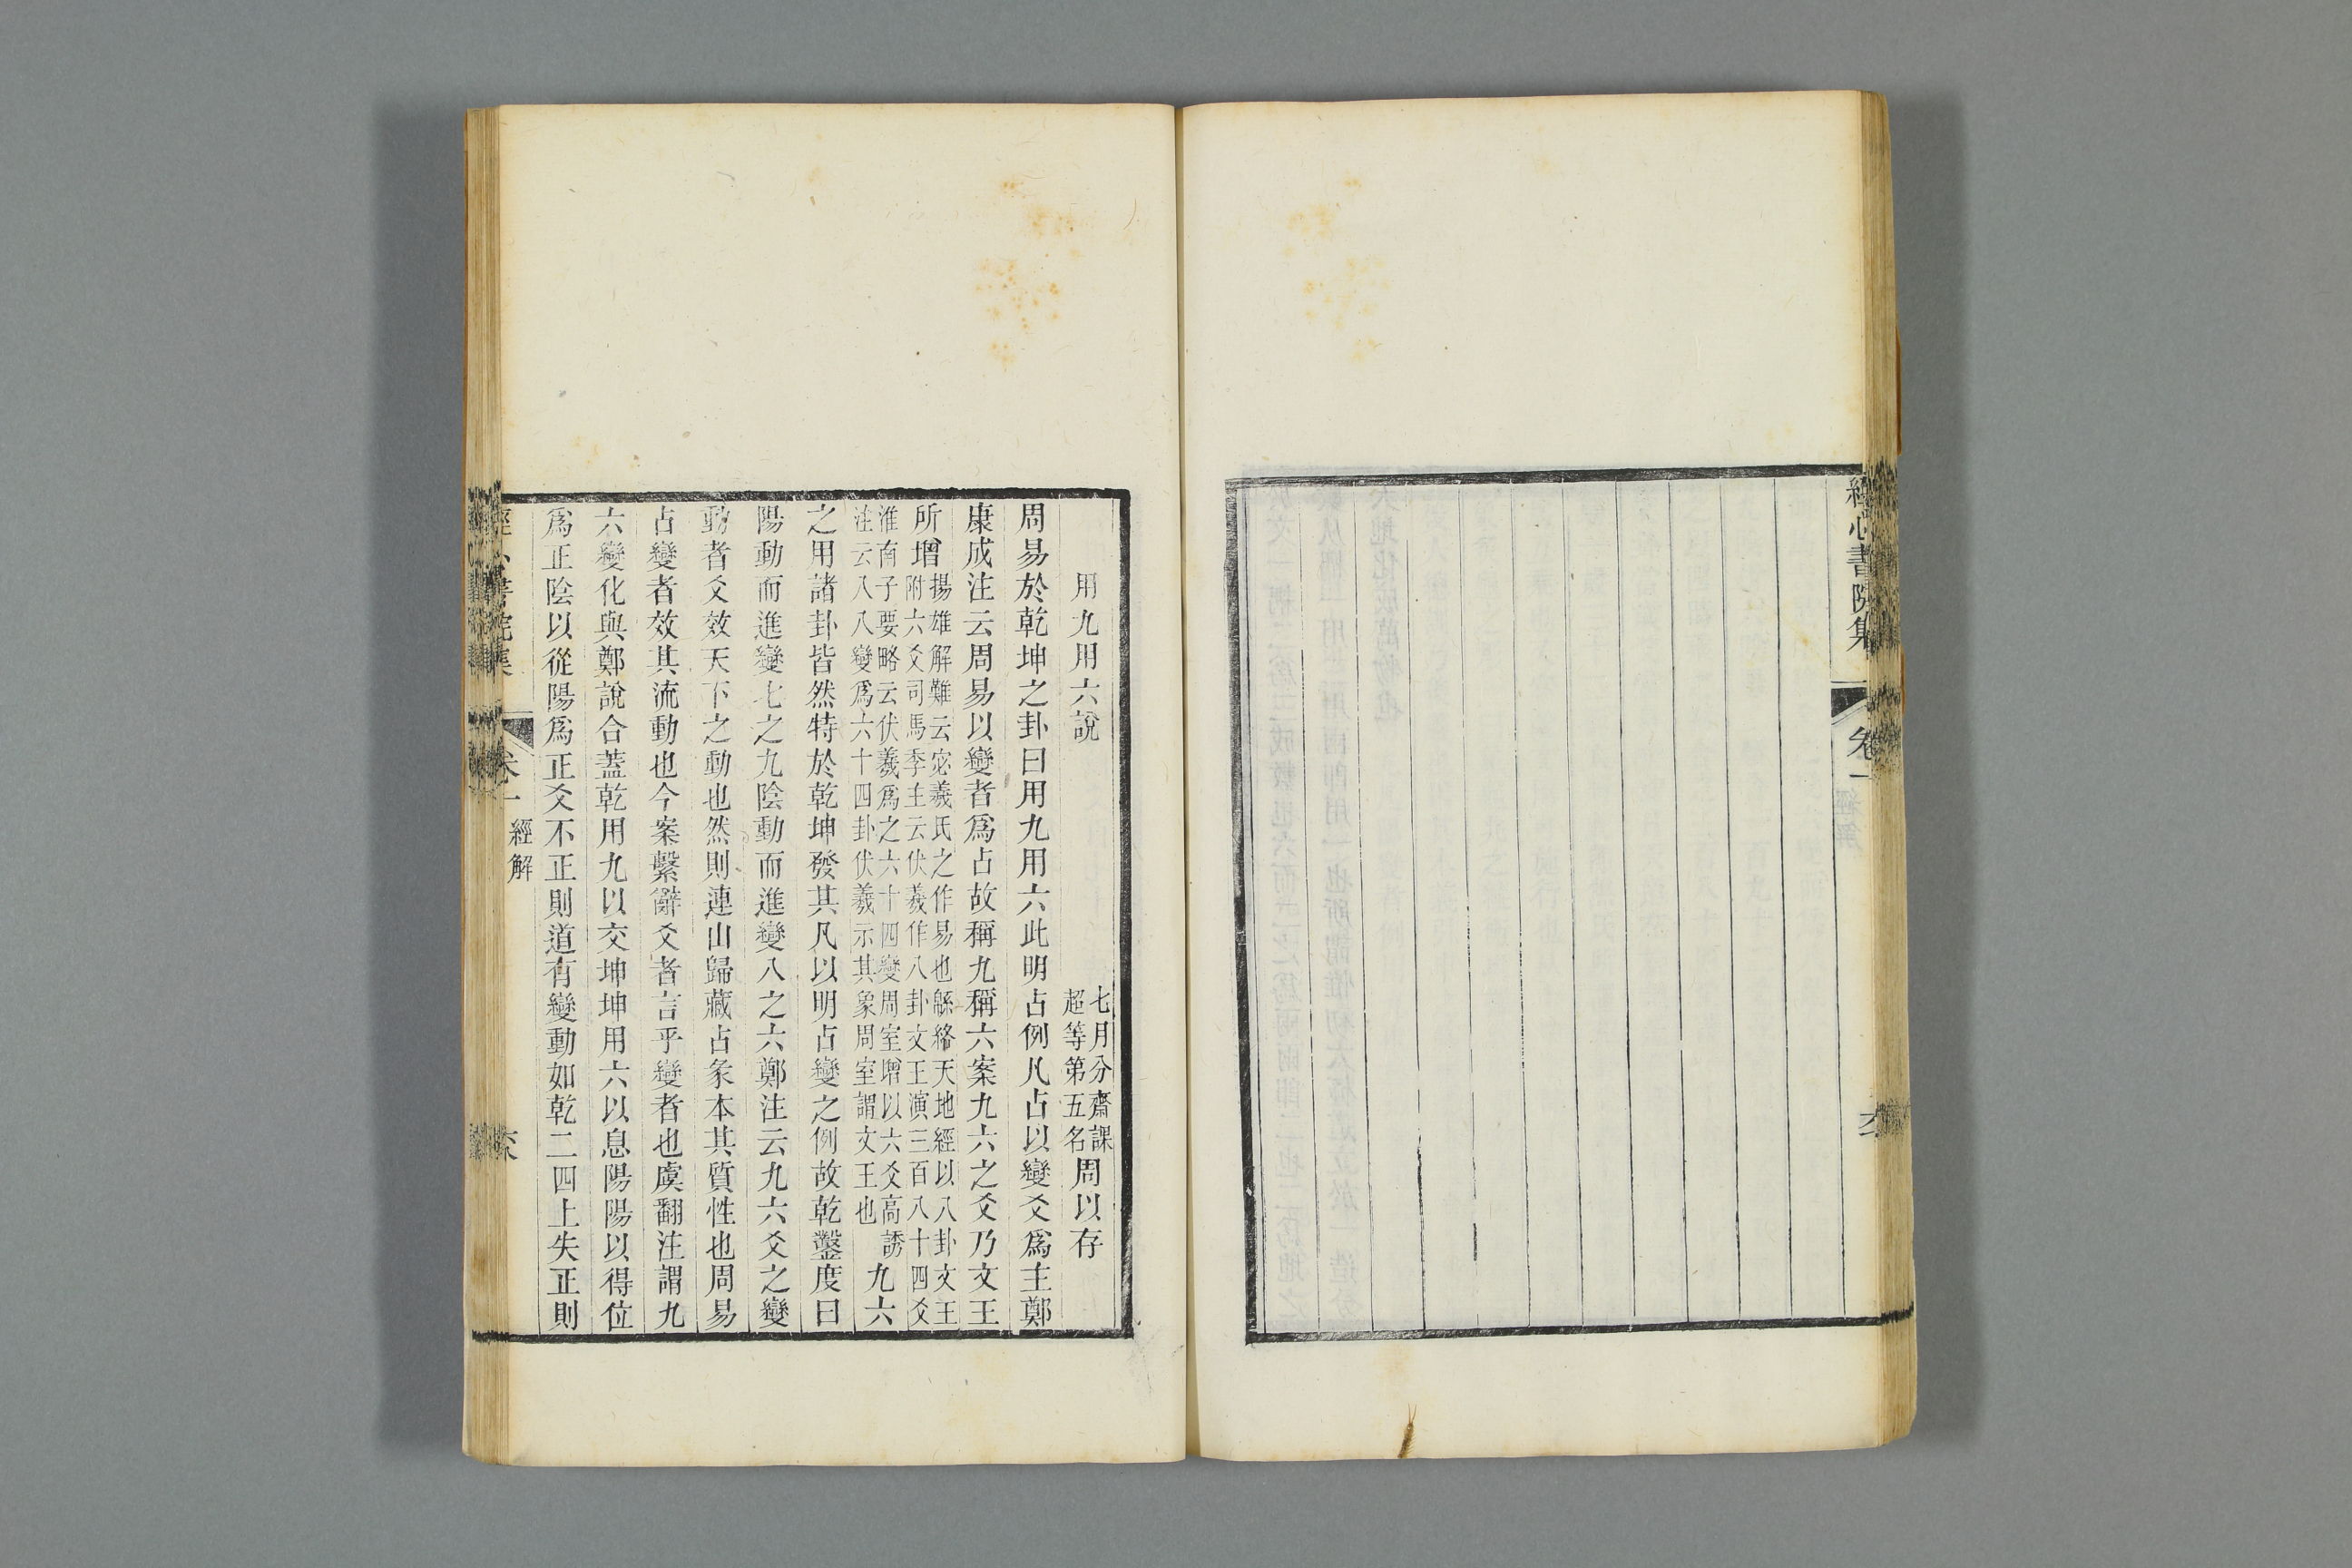 經心書院集
卷一
用九用六說 七月分齋課超等第五名 周以存
周易於乾坤之卦曰用九用六此明占例凡占以變爻爲主鄭
康成注云周易以變者爲占故稱九稱六案九六之爻乃文王
所增揚雄解難云宓羲氏之作易也緜絡天地經以八卦文王附六爻司馬季主云伏羲作八卦文王演三百八十四爻
淮南子要略云伏羲爲之六十四變周室增以六爻高誘注云八八變爲六十四卦伏羲示其象周室謂文王也九六
之用諸卦皆然特於乾坤發其凡以明占變之例故乾鑿度曰
陽動而進變七之九陰動而進變八之六鄭注云九六爻之變
動者爻效天下之動也然則連山歸藏占彖本其質性也周易
占變者效其流動也今案繫辭爻者言乎變者也虞翻注謂九
六變化與鄭說合蓋乾用九以交坤坤用六以息陽陽以得位
爲正陰以從陽爲正爻不正則道有變動如乾二四上失正則
卷一 經解